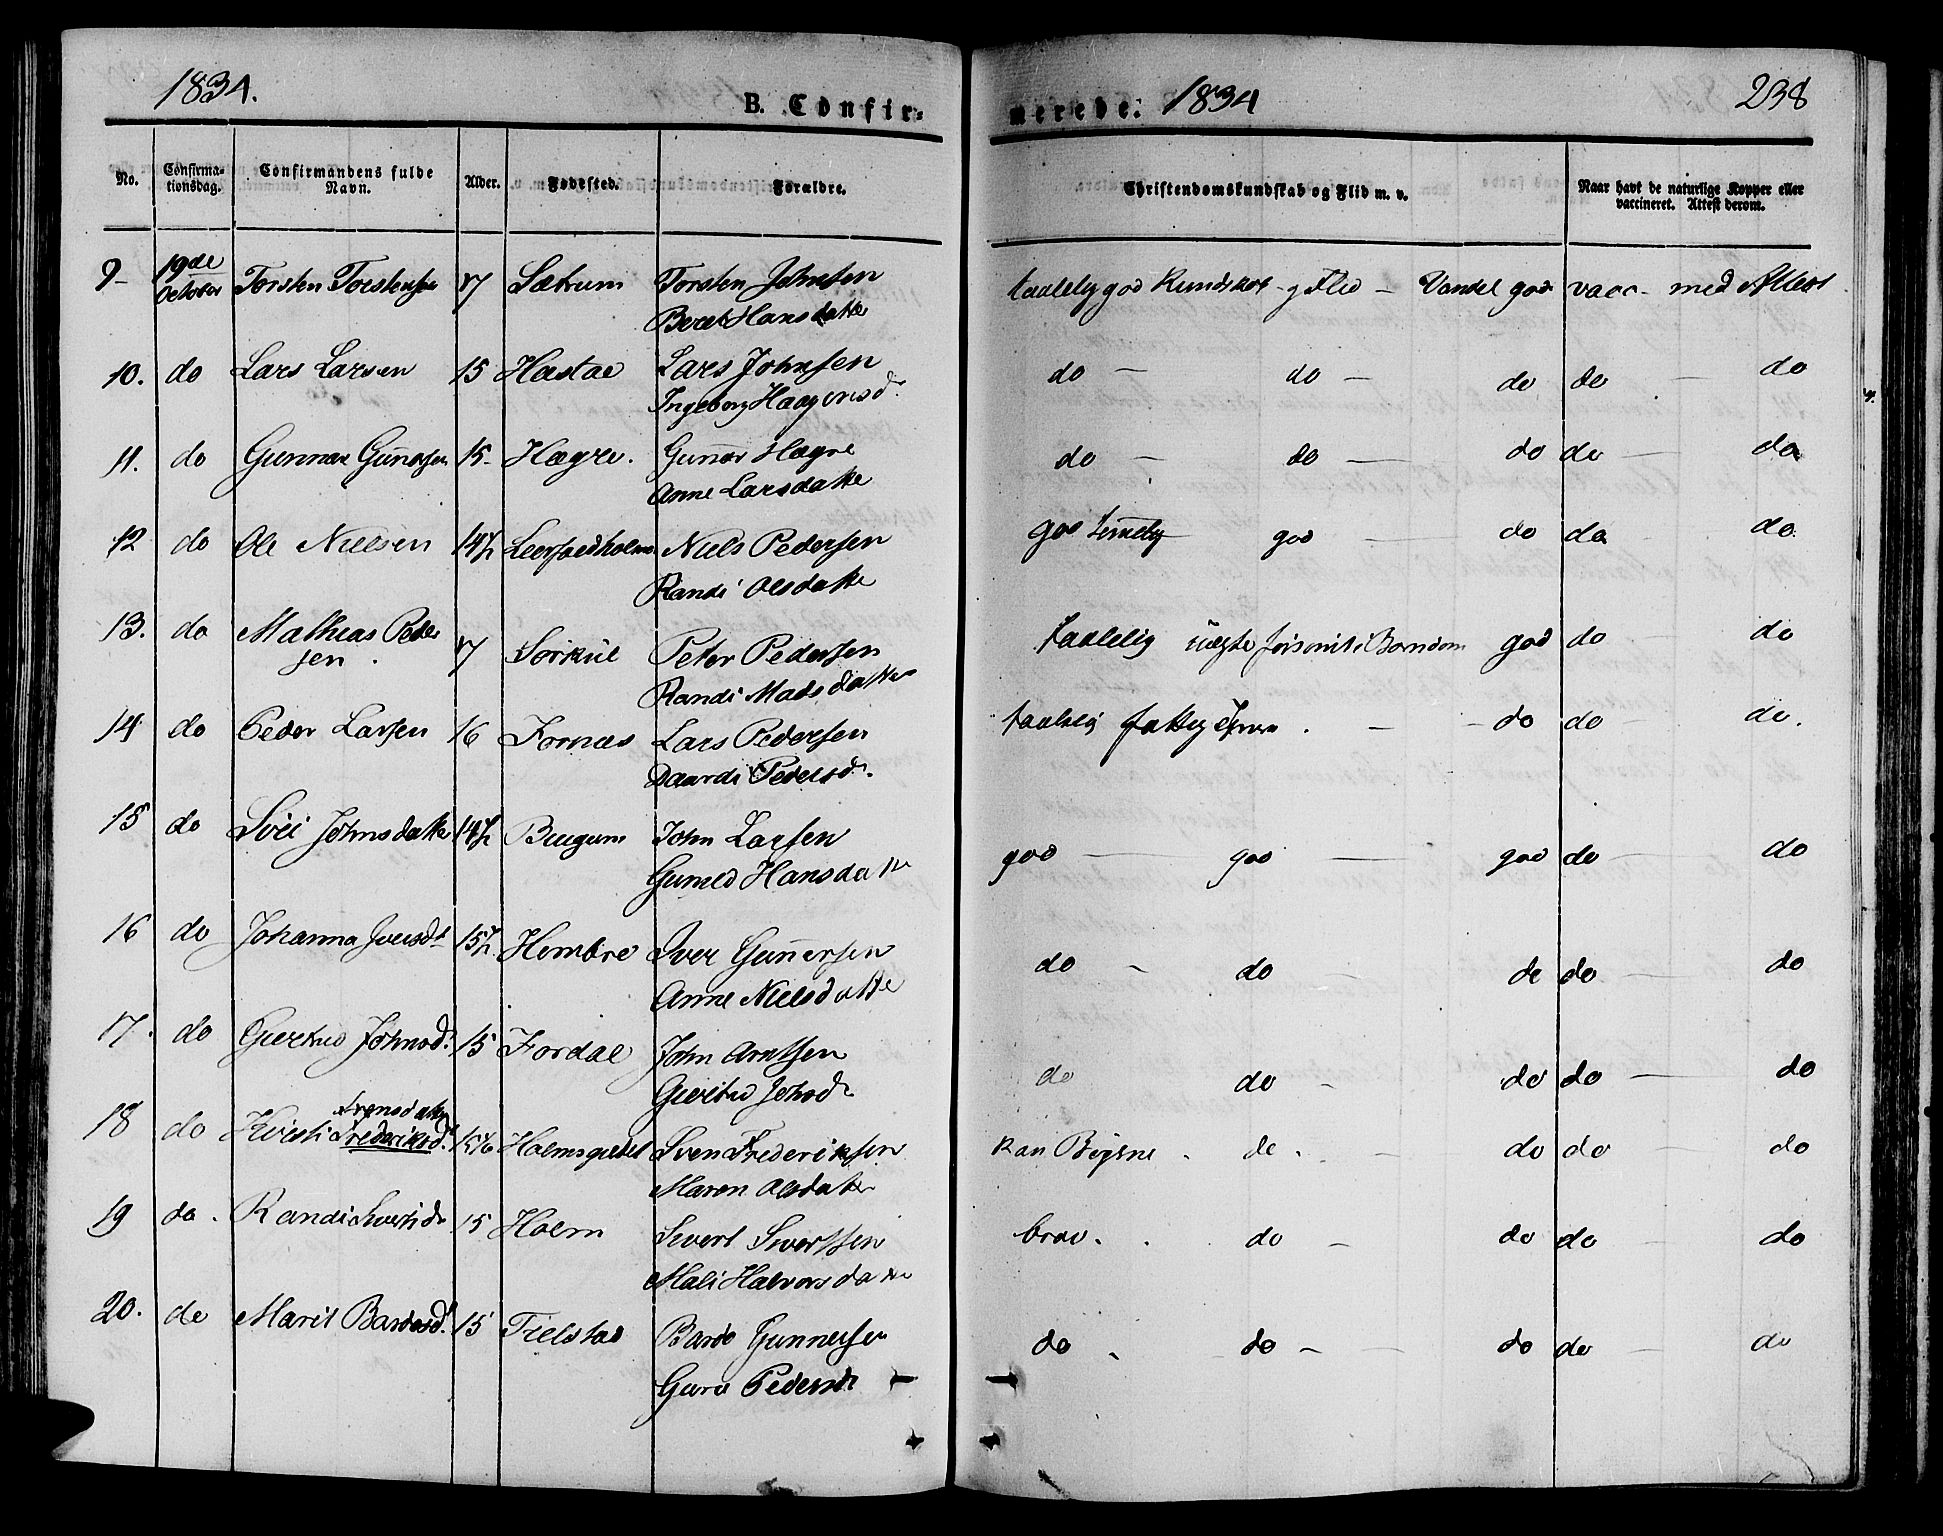 1834.
B. Confir-
No.
Confirma-
tionsdag.
Confirmandens fulde
Navn.
Alder.
Fødested.
Forældre.
9- 19de October Torsten Torstensen 17 Sætrum Torsten Johnsen
Beret Hansdatter
10. do Lars Larsen 15 Hastae Lars Johnsen
Ingeborg Haagensd.
11. do Gunnar Gun̄ersen 15- Hægre. Gun̄er Hægre
Anne Larsdatter
12 do Ole Nielsen 14½ Niels Pedersen
Randi Olsdatter
13. do Mathias Peder
sen. 17 Peter Pedersen
Randi Madsdatter
14 do Peder Larsen 16 Fornæs Lars Pedersen
Pedersd.
15 do Johnsdatter 14½ John Larsen
Hansdatter
16 do Johanna Iversd. 15½ Hembre Iver Gun̄ersen
Anne Nielsdatter
17. do Giertrud Johnsd. 15 Fordal John Arntsen
Giertrud Johnsd.
18 do Kirsti Svensdatter
Frederiksd. Sven Frederiksen
Maren Olsdatter
19 do. Randi Sivertsd. 15 Holm Sivert Sivertsen
Mali Halvorsdatter
20. do Marit Bardosd. 15 Fielstad Bardo Gunnersen
Guru Pedersd.
merede. 1834 238
Christendomskundskab og Flid m. v.
Naar havt de naturlige Kopper eller
vaccineret. Attest derom.
taalelig god Kundskab og Flid - Vandel god vacc- med Attest.
do - do - do do - do
do - do - do do - do
god temelig god - do do do
taalelig god do do
taalelig - do do do.
god - god - god do - do
do - do - do do - do
do do - do do - do
kan Bøgerne. do. - do do - do
brav. . do - do do - do
do . do - do do - do